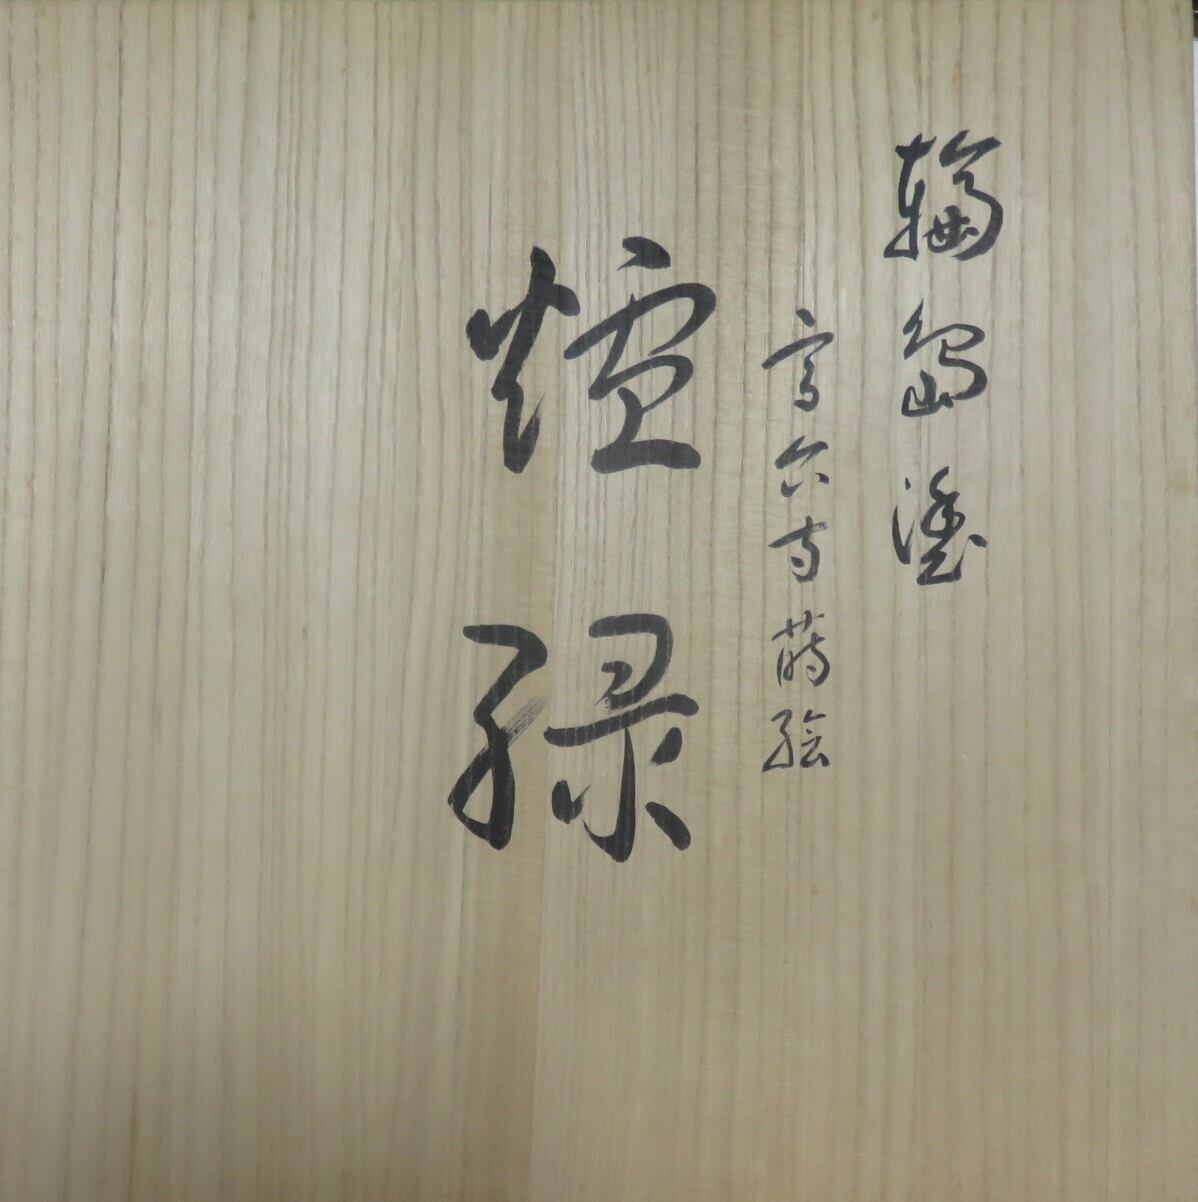 輪島塗
高台寺蒔絵
爐縁